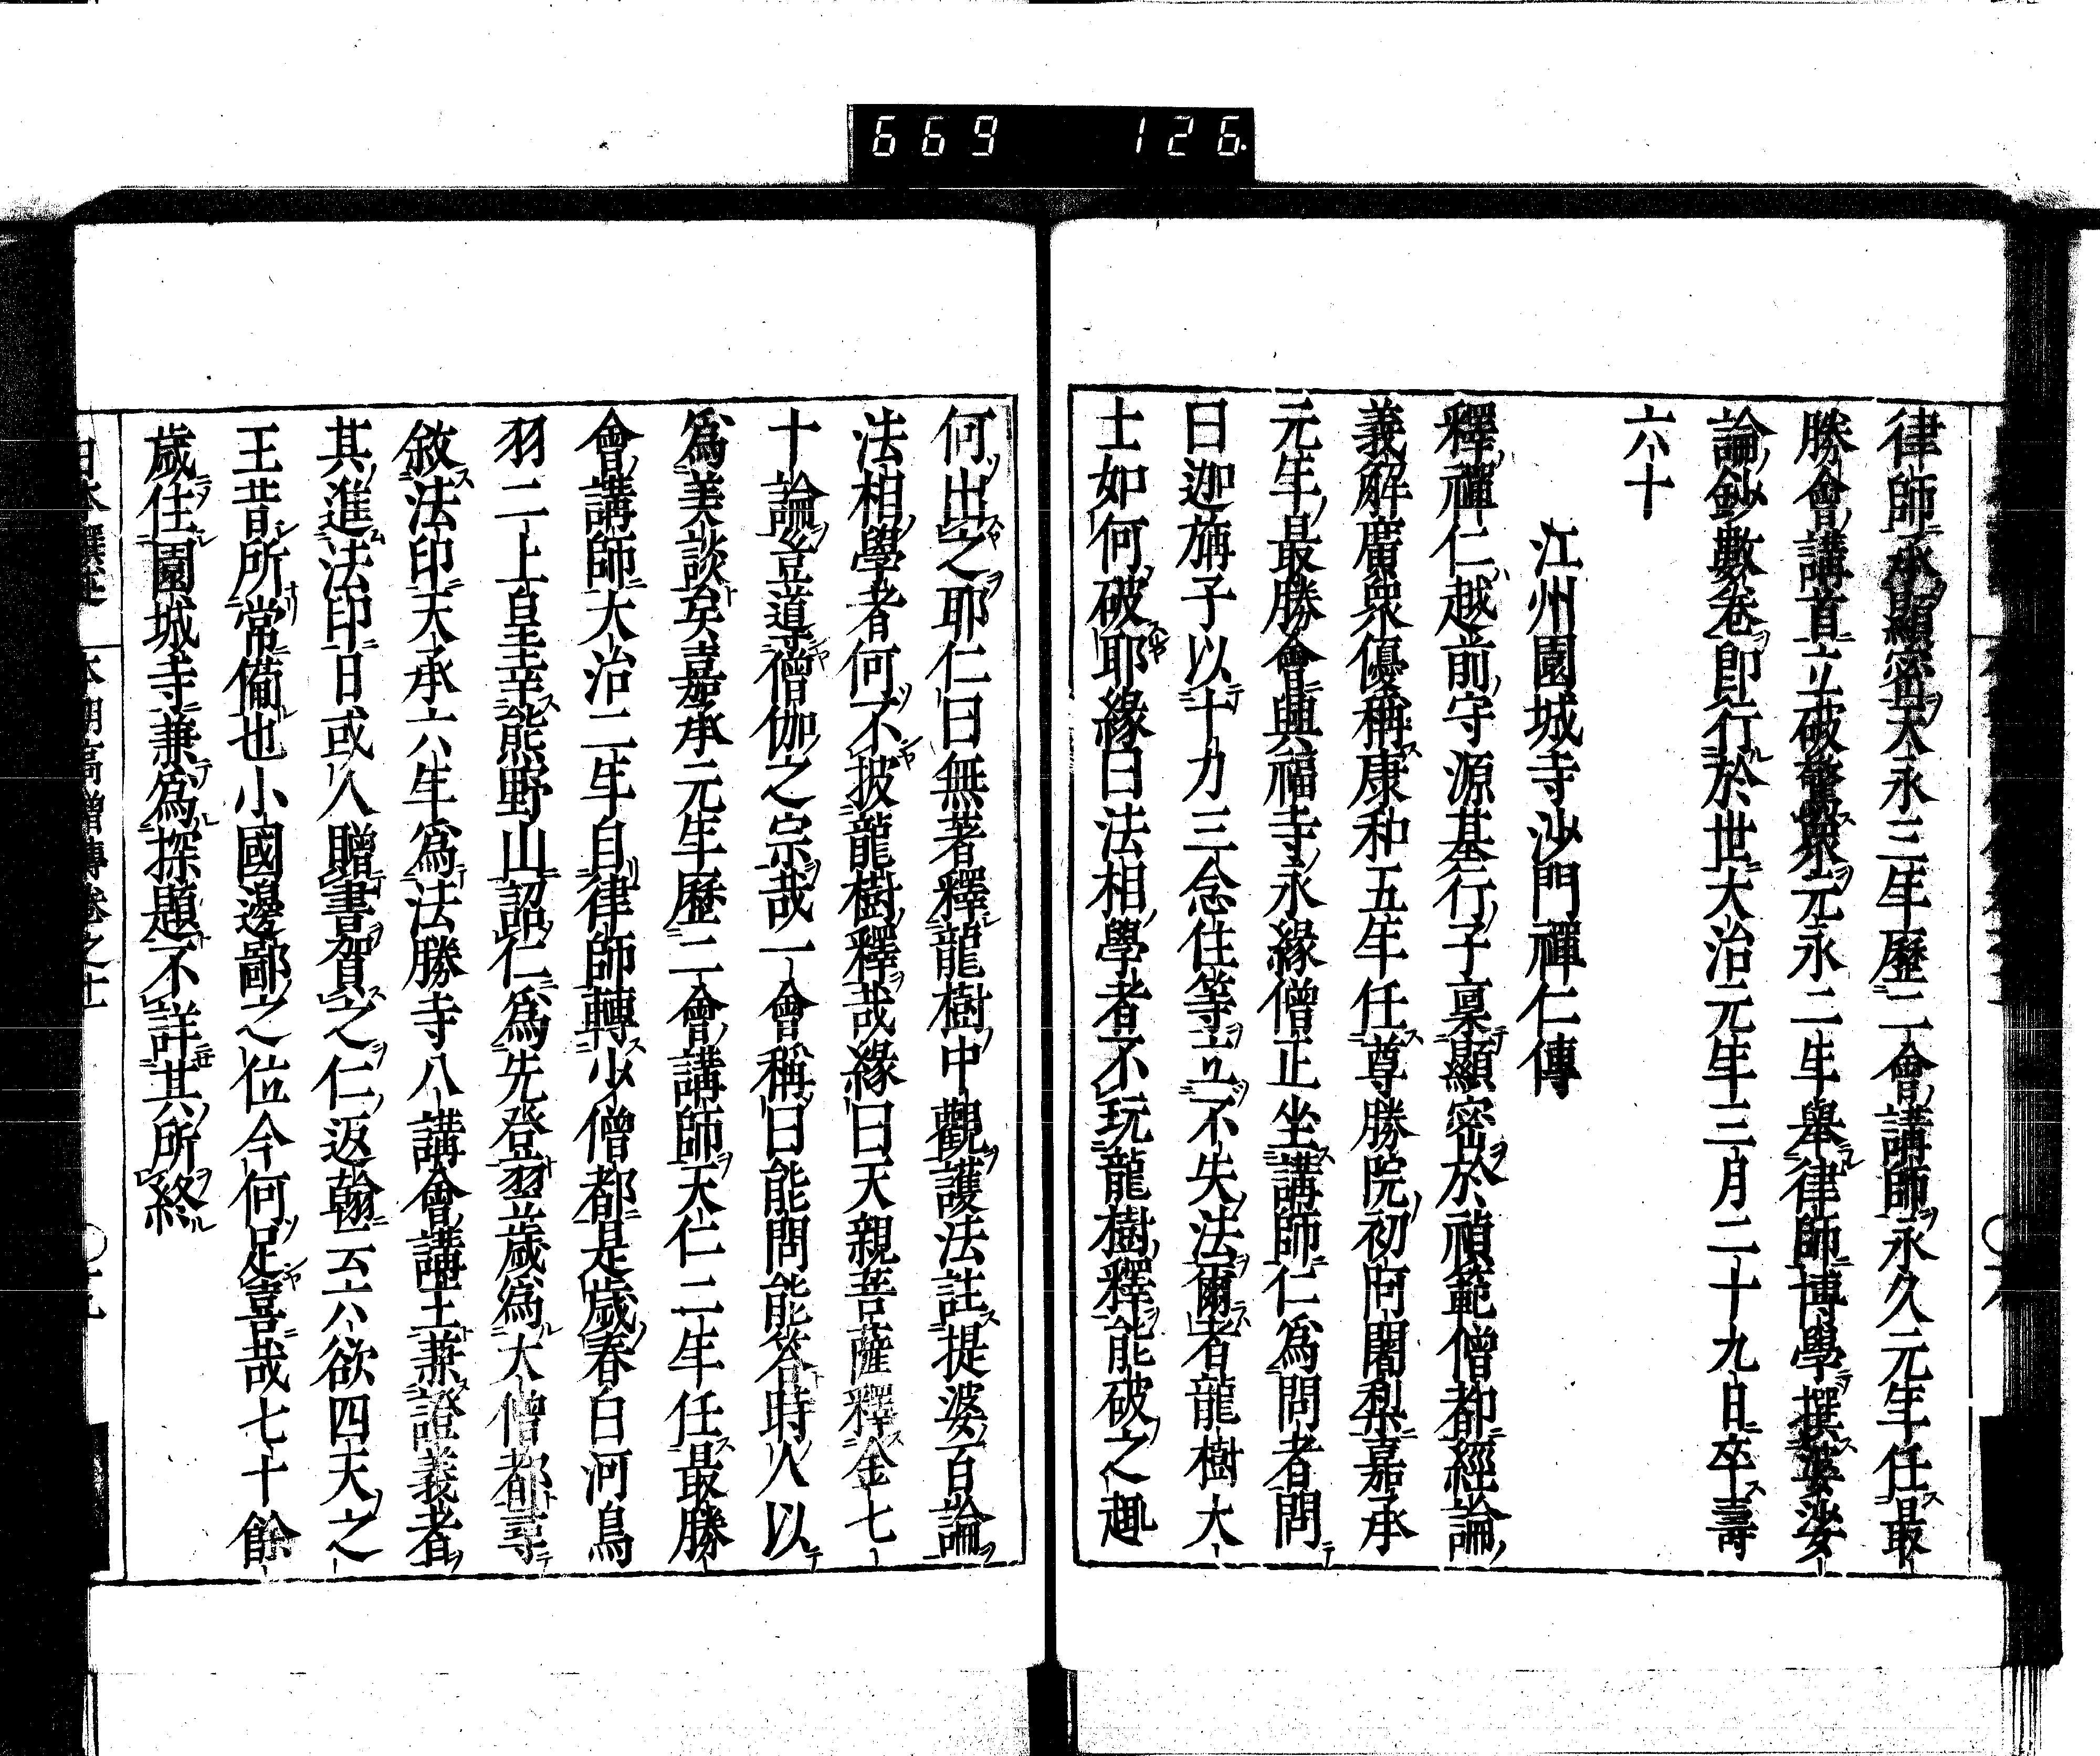 669 126
律師承顯密天永三年歷二會講師永久元年任最
勝會講首立破驚衆元永二年舉律師博學撰婆娑
論鈔數卷即行於世大治元年三月二十九日卒壽
六十
江州園城寺沙門禪仁傳
釋禪仁越前守源基行子稟顯密於禎範僧都經論
義解廣衆優稱康和五年任尊勝院初阿闍梨嘉承
元年最勝會興福寺永緣僧正坐講師仁為問者問
曰迦旃子以十力三念住等立不失法爾者龍樹大
士如何破耶緣曰法相學者不玩龍樹釋能破之趣
何出之耶仁曰無著釋龍樹中觀護法註提婆百論
法相學者何不披龍樹釋哉緣曰天親菩薩釋金七
十論豈道僧伽之宗哉一會稱曰能問能答時人以
爲美談矣嘉承元年歷二會講師天仁二年任最勝
會講師大治二年自律師轉少僧都是歲春白河鳥
羽二上皇幸熊野山詔仁爲先登翌歲爲大僧都尋
敘法印天承六年爲法勝寺八講會講主兼證義者
其進法印日或人贈書賀之仁返翰云六欲四天之
王昔所常備也小國邊鄙之位今何足喜哉七十餘
歲住園城寺兼爲探題不詳其所終
本朝高僧傳卷之十